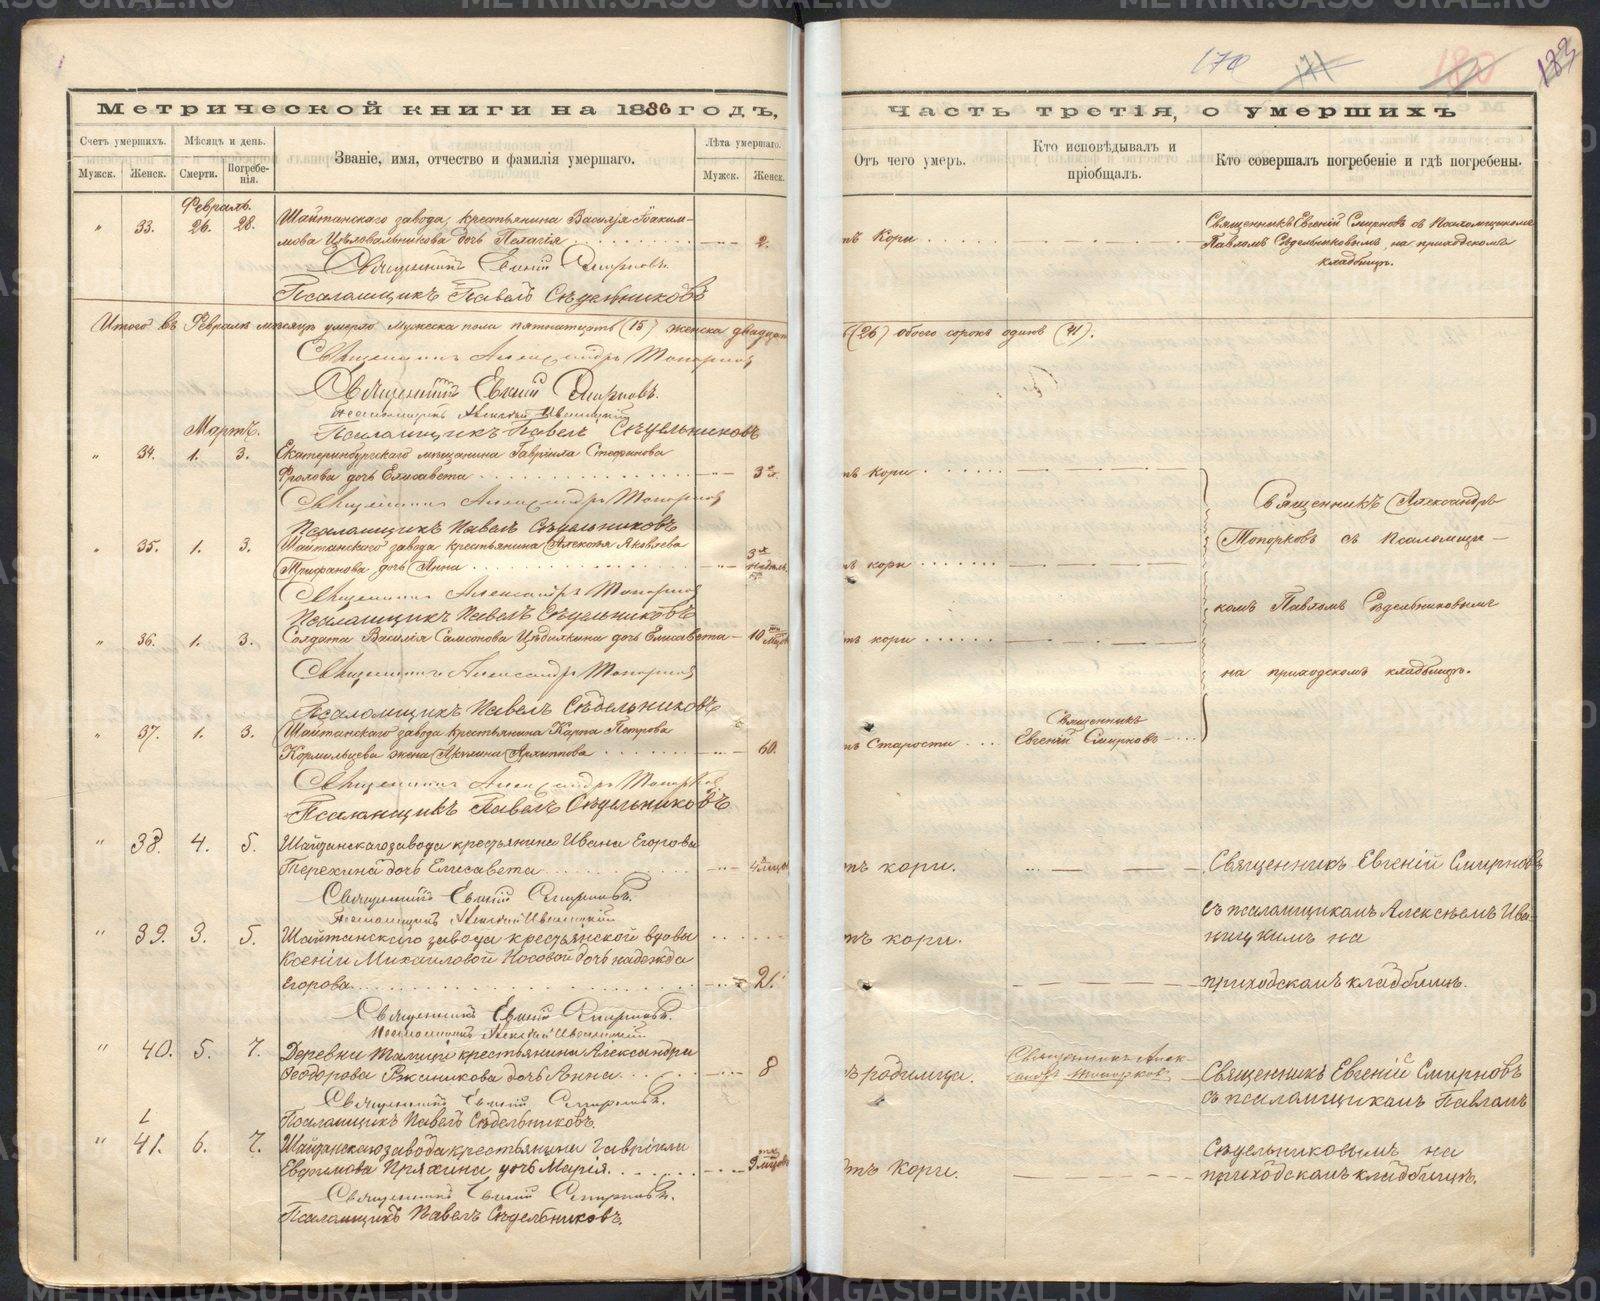 170 171 180 183
Метрической книги на 1886 годъ,
Часть третія, о умершихъ
Счетъ умершихъ.
Мѣсяцъ и день.
Званіе, имя, отчество и фамилія умершаго.
Лѣта умершаго.
Отъ чего умеръ.
Кто исповѣдывалъ и пріобщалъ.
Кто совершалъ погребеніе и гдѣ погребены.
Мужск. Женск. Смерти. Погребенія. Мужск. Женск.
Февраль.
" 33. 26. 28. Шайтанскаго завода, крестьянина Василія
мова Цѣловальникова дочь Пелагія 2. отъ Кори
Священникъ Евгеній Смирновъ съ Псаломщикомъ
Павломъ Сѣдельниковымъ, на приходскомъ
кладбищѣ.
Священникъ Евгеній Смирновъ.
Псаломщикъ Павелъ Сѣдельниковъ
Итого въ Февралѣ мѣсяцѣ умерло мужеска пола пятнатцать (15) женска двадцать (26) обоего сорокъ одинъ (41).
Священникъ Александръ Топорковъ
Священникъ Евгеній Смирновъ.
Псаломщикъ Алексѣй Иваницкій
Псаломщикъ Павелъ Сѣдельниковъ
Мартъ.
" 34. 1. 3. Екатеринбургскаго мѣщанина Гавріила Стефанова
Фролова дочь Елисавета 3 отъ Кори
Священникъ Александръ Топорковъ
Псаломщикъ Павелъ Сѣдельниковъ
" 35. 1. 3. Шайтанскаго завода крестьянина Алексѣя Яковлева
Трифанова дочь Анна 3х недѣль. отъ кори
Священникъ Александръ Топорковъ
Псаломщикъ Павелъ Сѣдельниковъ
" 36. 1. 3. Солдата Василія Самсонова дочь Елисавета 10 отъ кори
Священникъ Александръ Топорковъ
Псаломщикъ Павелъ Сѣдельниковъ
" 37. 1. 3. Шайтанскаго завода крестьянина Карпа Петрова
Кормильцева жена Акилина Архиппова 60. отъ Старости
Священникъ
Евгеній Смирновъ
Священникъ Александръ
Топорковъ съ Псаломщи-
комъ Павломъ Сѣдельниковымъ
на приходскомъ кладбищѣ.
Священникъ Александръ Топорковъ
Псаломщикъ Павелъ Сѣдельниковъ
" 38. 4. 5. Шайтанскаго завода крестьянина Ивана Егорова
Терехина дочь Елисавета 4 отъ кори.
Священникъ Евгеній Смирновъ
Священникъ Евгеній Смирновъ.
Псаломщикъ Алексѣй Иваницкій
съ псаломщикомъ Алексѣемъ Ива-
ницкимъ на
приходскомъ кладбищѣ.
" 39. 3. 5. Шайтанскаго завода крестьянской вдовы
Ксеніи Михаиловой Носовой дочь Надежда
Егорова 2. отъ кори.
Священникъ Евгеній Смирновъ.
Псаломщикъ Алексѣй Иваницкій
" 40. 5. 7. Деревни Талицы крестьянина Александра
Феодорова Ржаникова дочь Анна 8 родимца.
Священникъ Алек-
сандръ Топорковъ
Священникъ Евгеній Смирновъ
съ псаломщикомъ Павломъ
Священникъ Евгеній Смирновъ.
Псаломщикъ Павелъ Сѣдельниковъ.
" 41. 6. 7. Шайтанскаго завода крестьянина Гавріила
Евфимова Пряхина дочь Марія 9 отъ Кори.
Сѣдельниковымъ на
приходскомъ кладбищѣ.
Священникъ Евгеній Смирновъ.
Псаломщикъ Павелъ Сѣдельниковъ.
METRIKI.GASO-URAL.RU